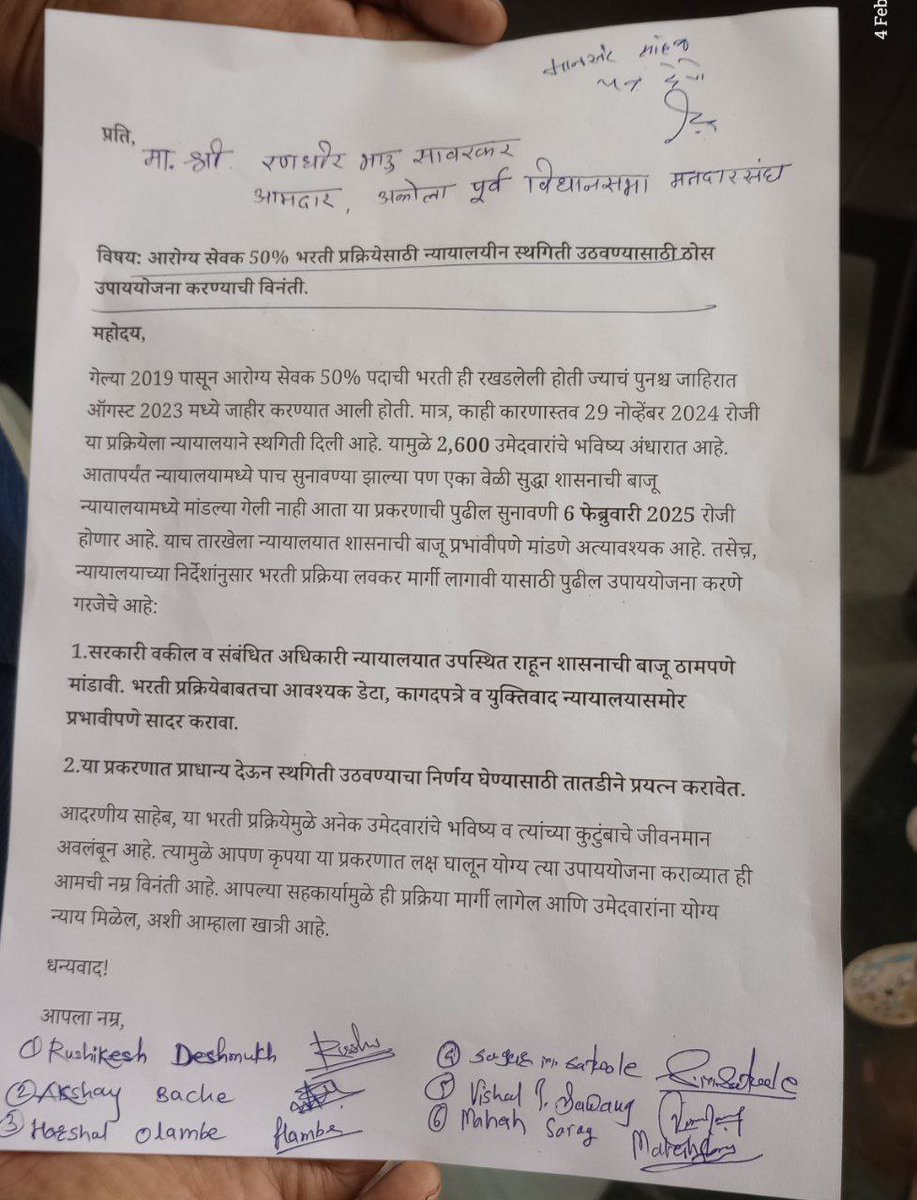 4 Feb
पत्र
प्रति,
मा. श्री. रणधीर भाऊ सावरकर
आमदार, अकोला पूर्व विधानसभा मतदारसंघ
विषय: आरोग्य सेवक 50% भरती प्रक्रियेसाठी न्यायालयीन स्थगिती उठवण्यासाठी ठोस
उपाययोजना करण्याची विनंती.
महोदय,
गेल्या 2019 पासून आरोग्य सेवक 50% पदाची भरती ही रखडलेली होती ज्याचं पुनश्च जाहिरात
ऑगस्ट 2023 मध्ये जाहीर करण्यात आली होती. मात्र, काही कारणास्तव 29 नोव्हेंबर 2024 रोजी
या प्रक्रियेला न्यायालयाने स्थगिती दिली आहे. यामुळे 2,600 उमेदवारांचे भविष्य अंधारात आहे.
आतापर्यंत न्यायालयामध्ये पाच सुनावण्या झाल्या पण एका वेळी सुद्धा शासनाची बाजू
न्यायालयामध्ये मांडल्या गेली नाही आता या प्रकरणाची पुढील सुनावणी 6 फेब्रुवारी 2025 रोजी
होणार आहे. याच तारखेला न्यायालयात शासनाची बाजू प्रभावीपणे मांडणे अत्यावश्यक आहे. तसेच,
न्यायालयाच्या निर्देशांनुसार भरती प्रक्रिया लवकर मार्गी लागावी यासाठी पुढील उपाययोजना करणे
गरजेचे आहे:
1.सरकारी वकील व संबंधित अधिकारी न्यायालयात उपस्थित राहून शासनाची बाजू ठामपणे
मांडावी. भरती प्रक्रियेबाबतचा आवश्यक डेटा, कागदपत्रे व युक्तिवाद न्यायालयासमोर
प्रभावीपणे सादर करावा.
2.या प्रकरणात प्राधान्य देऊन स्थगिती उठवण्याचा निर्णय घेण्यासाठी तातडीने प्रयत्न करावेत.
आदरणीय साहेब, या भरती प्रक्रियेमुळे अनेक उमेदवारांचे भविष्य व त्यांच्या कुटुंबाचे जीवनमान
अवलंबून आहे. त्यामुळे आपण कृपया या प्रकरणात लक्ष घालून योग्य त्या उपाययोजना कराव्यात ही
आमची नम्र विनंती आहे. आपल्या सहकार्यामुळे ही प्रक्रिया मार्गी लागेल आणि उमेदवारांना योग्य
न्याय मिळेल, अशी आम्हाला खात्री आहे.
धन्यवाद!
आपला नम्र,
① Rushikesh Deshmukh
② Akshay Bache
③ Harshal Olambe
④ Sagar m. Sarkoole
⑤ Vishal
⑥ Mahah Sarag